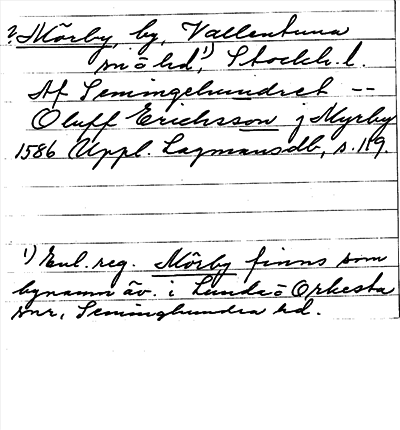 ? Mörby, by, Vallentuna
sn ö hd,¹⁾ Stockh. l.
Af Semingehundret --
Oluff Erichsson j Myrby
1586 Uppl. Lagmansdb, s. 119.
¹⁾ Enl. reg. Mörby finns som
bynamn äv. i Lunda ö Orkesta
snr, Seminghundra hd.